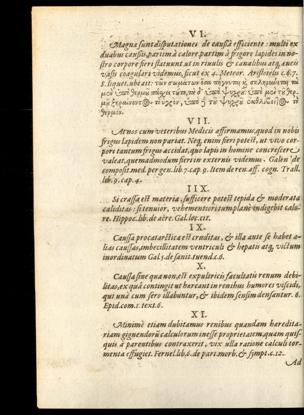 VI.
Magnæ sunt disputationes de caussâ efficiente: multi ex
duabus caussis, partim à calore partim à frigore lapides in no-
stro corpore fieri statuunt, ut in rivulis & canalibus atq; aut is
vasis coagulari videmus, sicut ex 4. Meteor. Aristotelis c. & 7.
8. liquet, ubi ait:
VII.
At nos cum veteribus Medicis affirmamus, quod in nobis
frigus lapidem non pariat. Neq; enim fieri potest, ut vivo cor-
pore tantum frigus accidat, quo lapis in homine concrescere
valeat, quemadmodum fieri in externis videmus. Galen' de
compos. it. med. per gen. lib. 7. cap. 9. Item de ren. aff. cogn. Trall.
lib. 9. cap. 4.
IIX.
Si crassa est materia, sufficere potest tepida & moderata
caliditas: si tenuior, vehementiorem planè indigebit calo-
re. Hippoc. lib. de aëre. Gal. loc. cit.
IX.
Caussa procatarctica est cruditas, & illa ante se habet a-
lias caussas, imbecillitatem ventriculi & hepatis atq; victum
inordinatum Gal. 3. de sanit. tuend. c. 6.
X.
Caussa sine qua non, est expultricis facultatis renum debi-
litas, ex quâ contingit ut hæreant in renibus humores viscidi,
qui unà cum sero illabuntur, & ibidem sensim densantur. 6.
Epid. com. 1. text. 6.
XI.
Minimè etiam dubitamus renibus quandam heredita-
riam gignendorum calculorum inesse proprietatem, quam quis-
quis à parentibus contraxerit, vix ulla ratione calculi tor-
menta effugiet. Fernel. lib. 6. de part. morb. & sympt. c. 12.
Ad